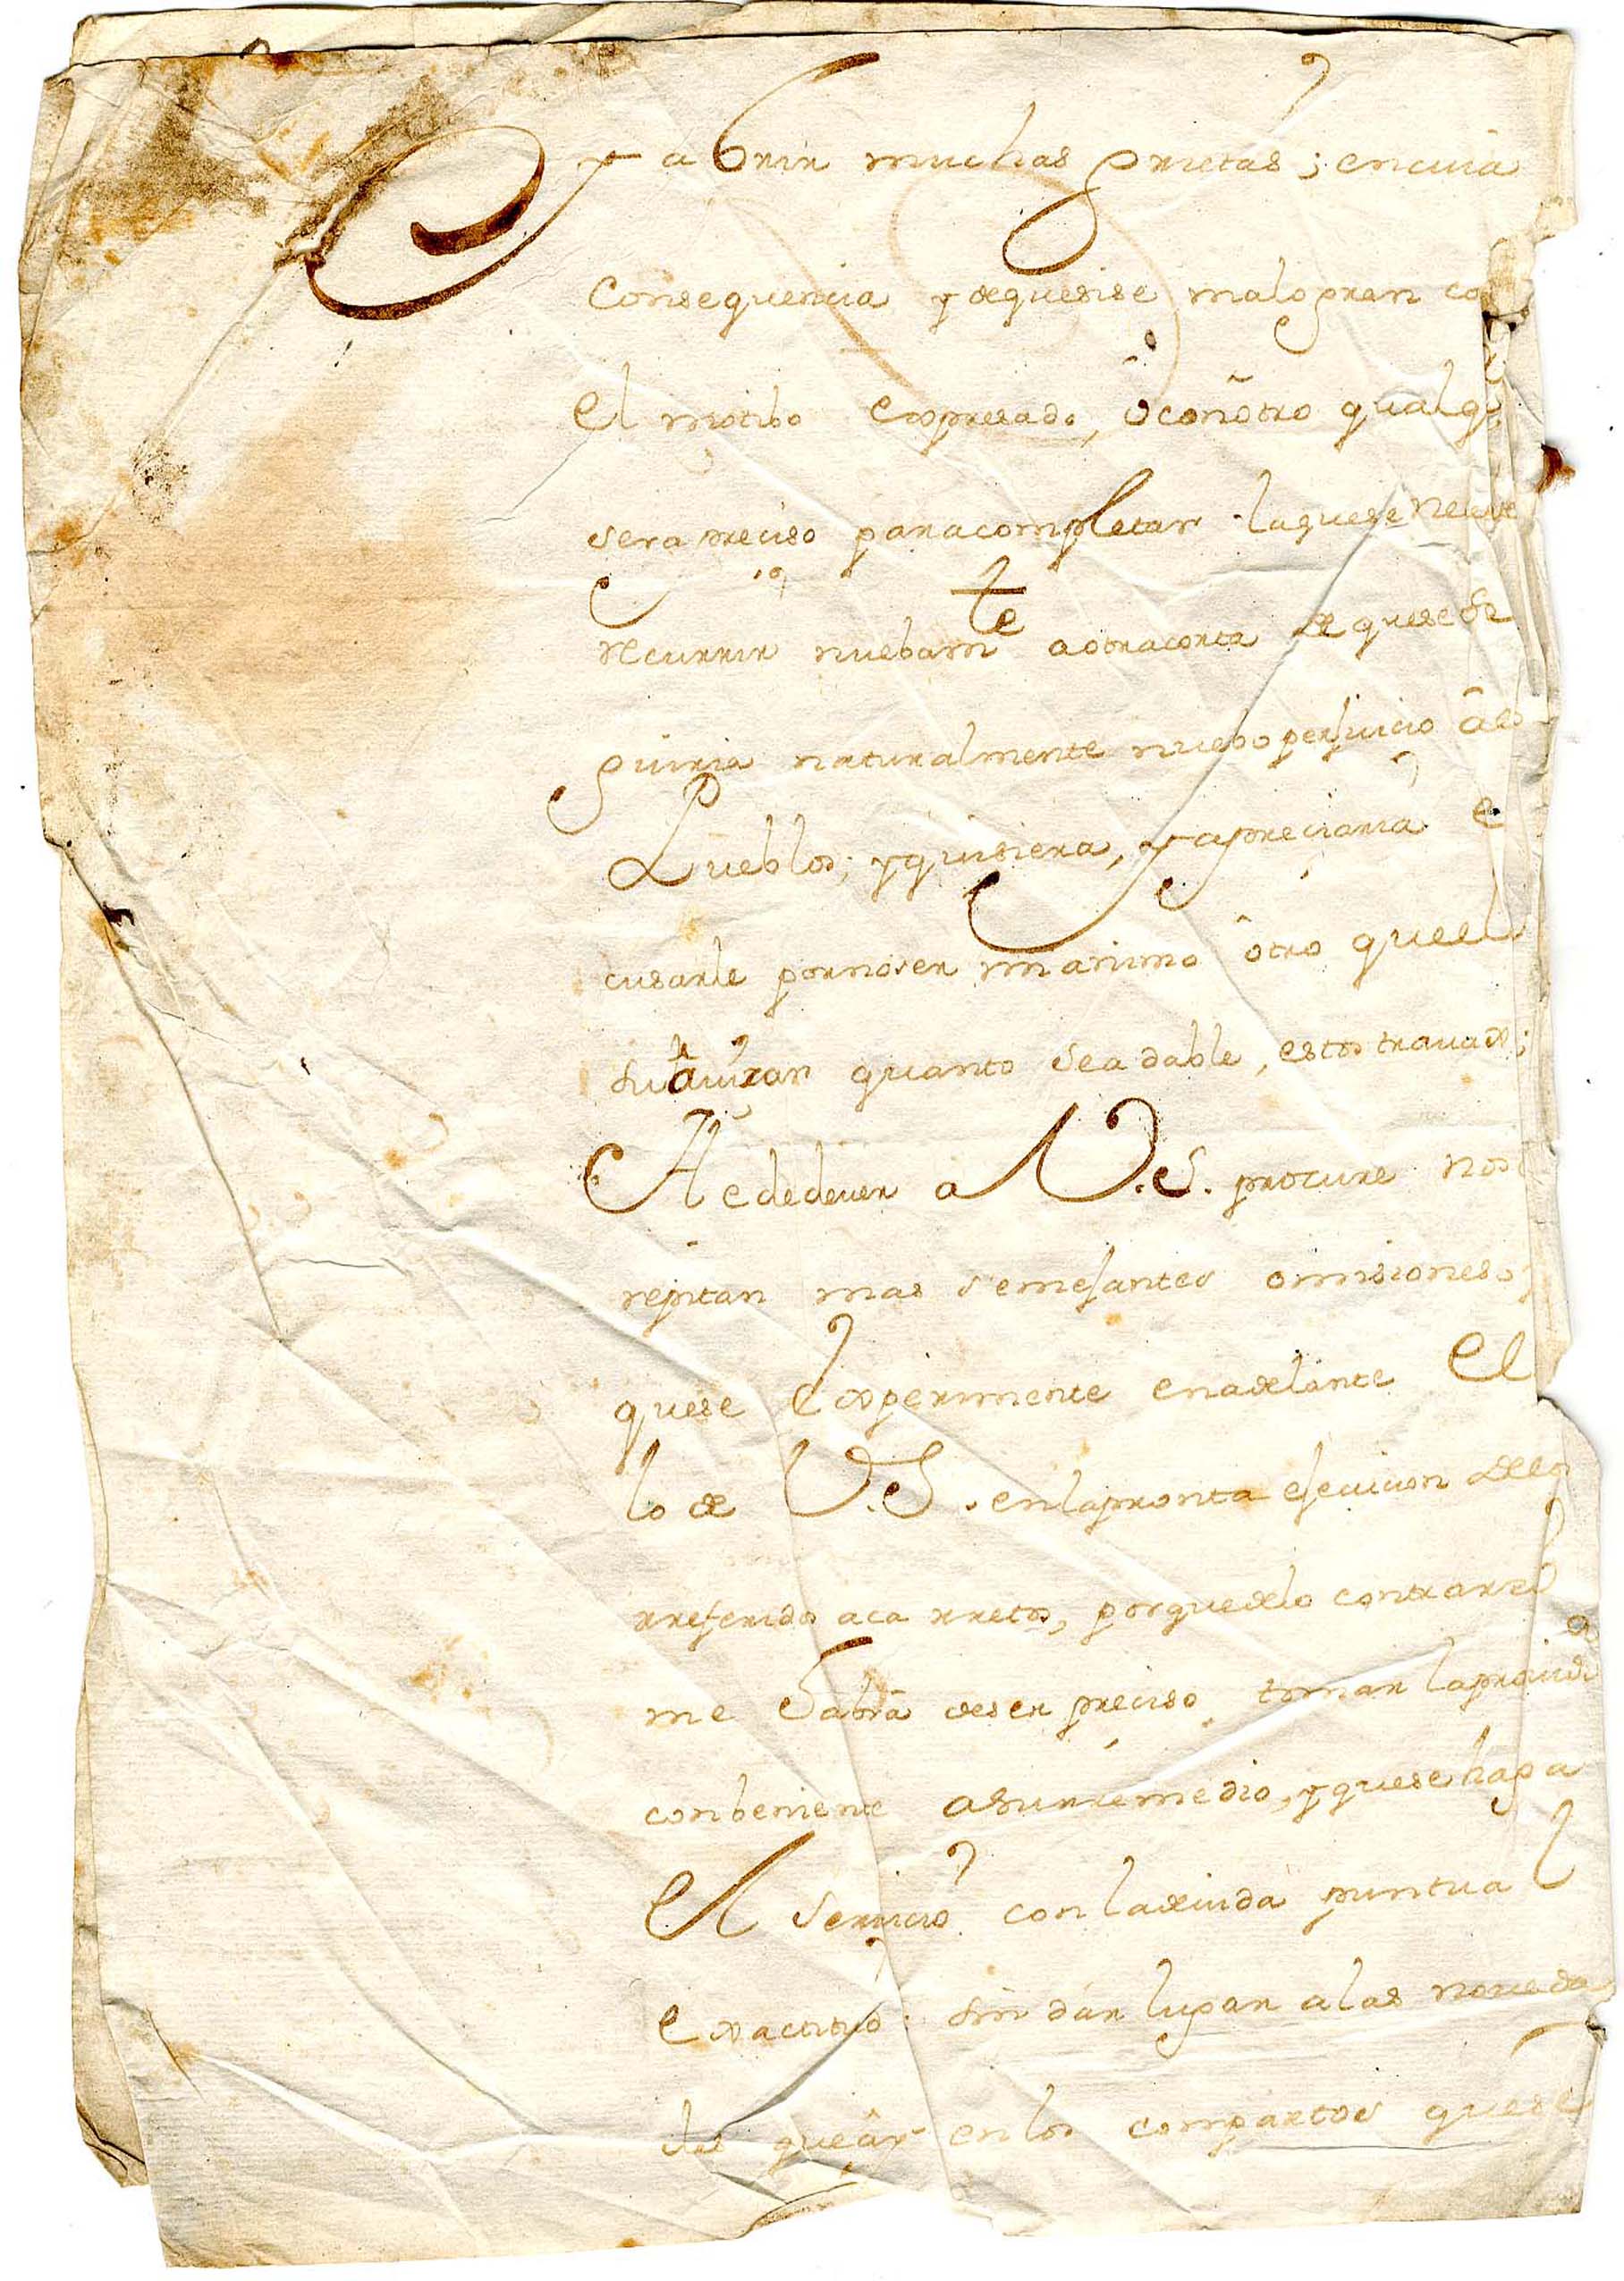 y abrir muchas grietas; encuia
Consequencia y dequesise malogran co
el motibo expresado, ô coñ otro qualqu
sera preciso paracompletar laquese nece
recurrir nuebam.te aotracorta de quese se
guiria naturalmente nuebo perjuicio âlos
Pueblos; yquisiera, y apreciaria e
cusarle pornoser mi animo ôtro queel
suauizar quanto sea dable, estos trauaxos;
He dedeuer a V.S. procure nos
repitan mas semejantes omisiones
quese experimente enadelante El
lo de V.S. enlapronta ejecucion delos
rreferidos acarretos, porquedelo contrario
me sabra deser preciso tomar laprouid
conbeniente asurremedio, yquesehaga
el seruicio con ladeuida puntual
exactitud: sin dar lugar alas noueda
des queây en los compartos quese